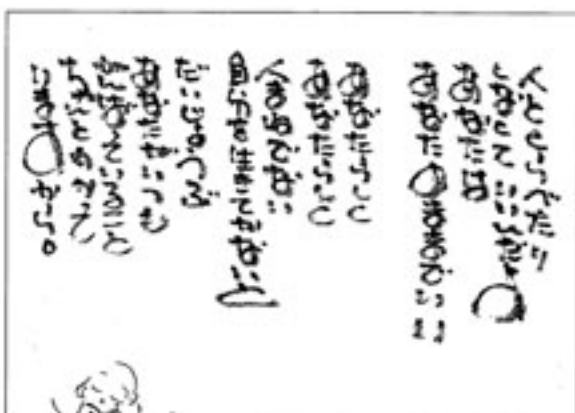 人とくらべたり
しなくていいんだよ
あなたは
あなたのままでいい
あなたらしく
あなたらしく
人まねでない
自分を生きてかないと
だいじょうぶ
あなたがいつも
がんばっていること
ちゃんとわかって
いますから。